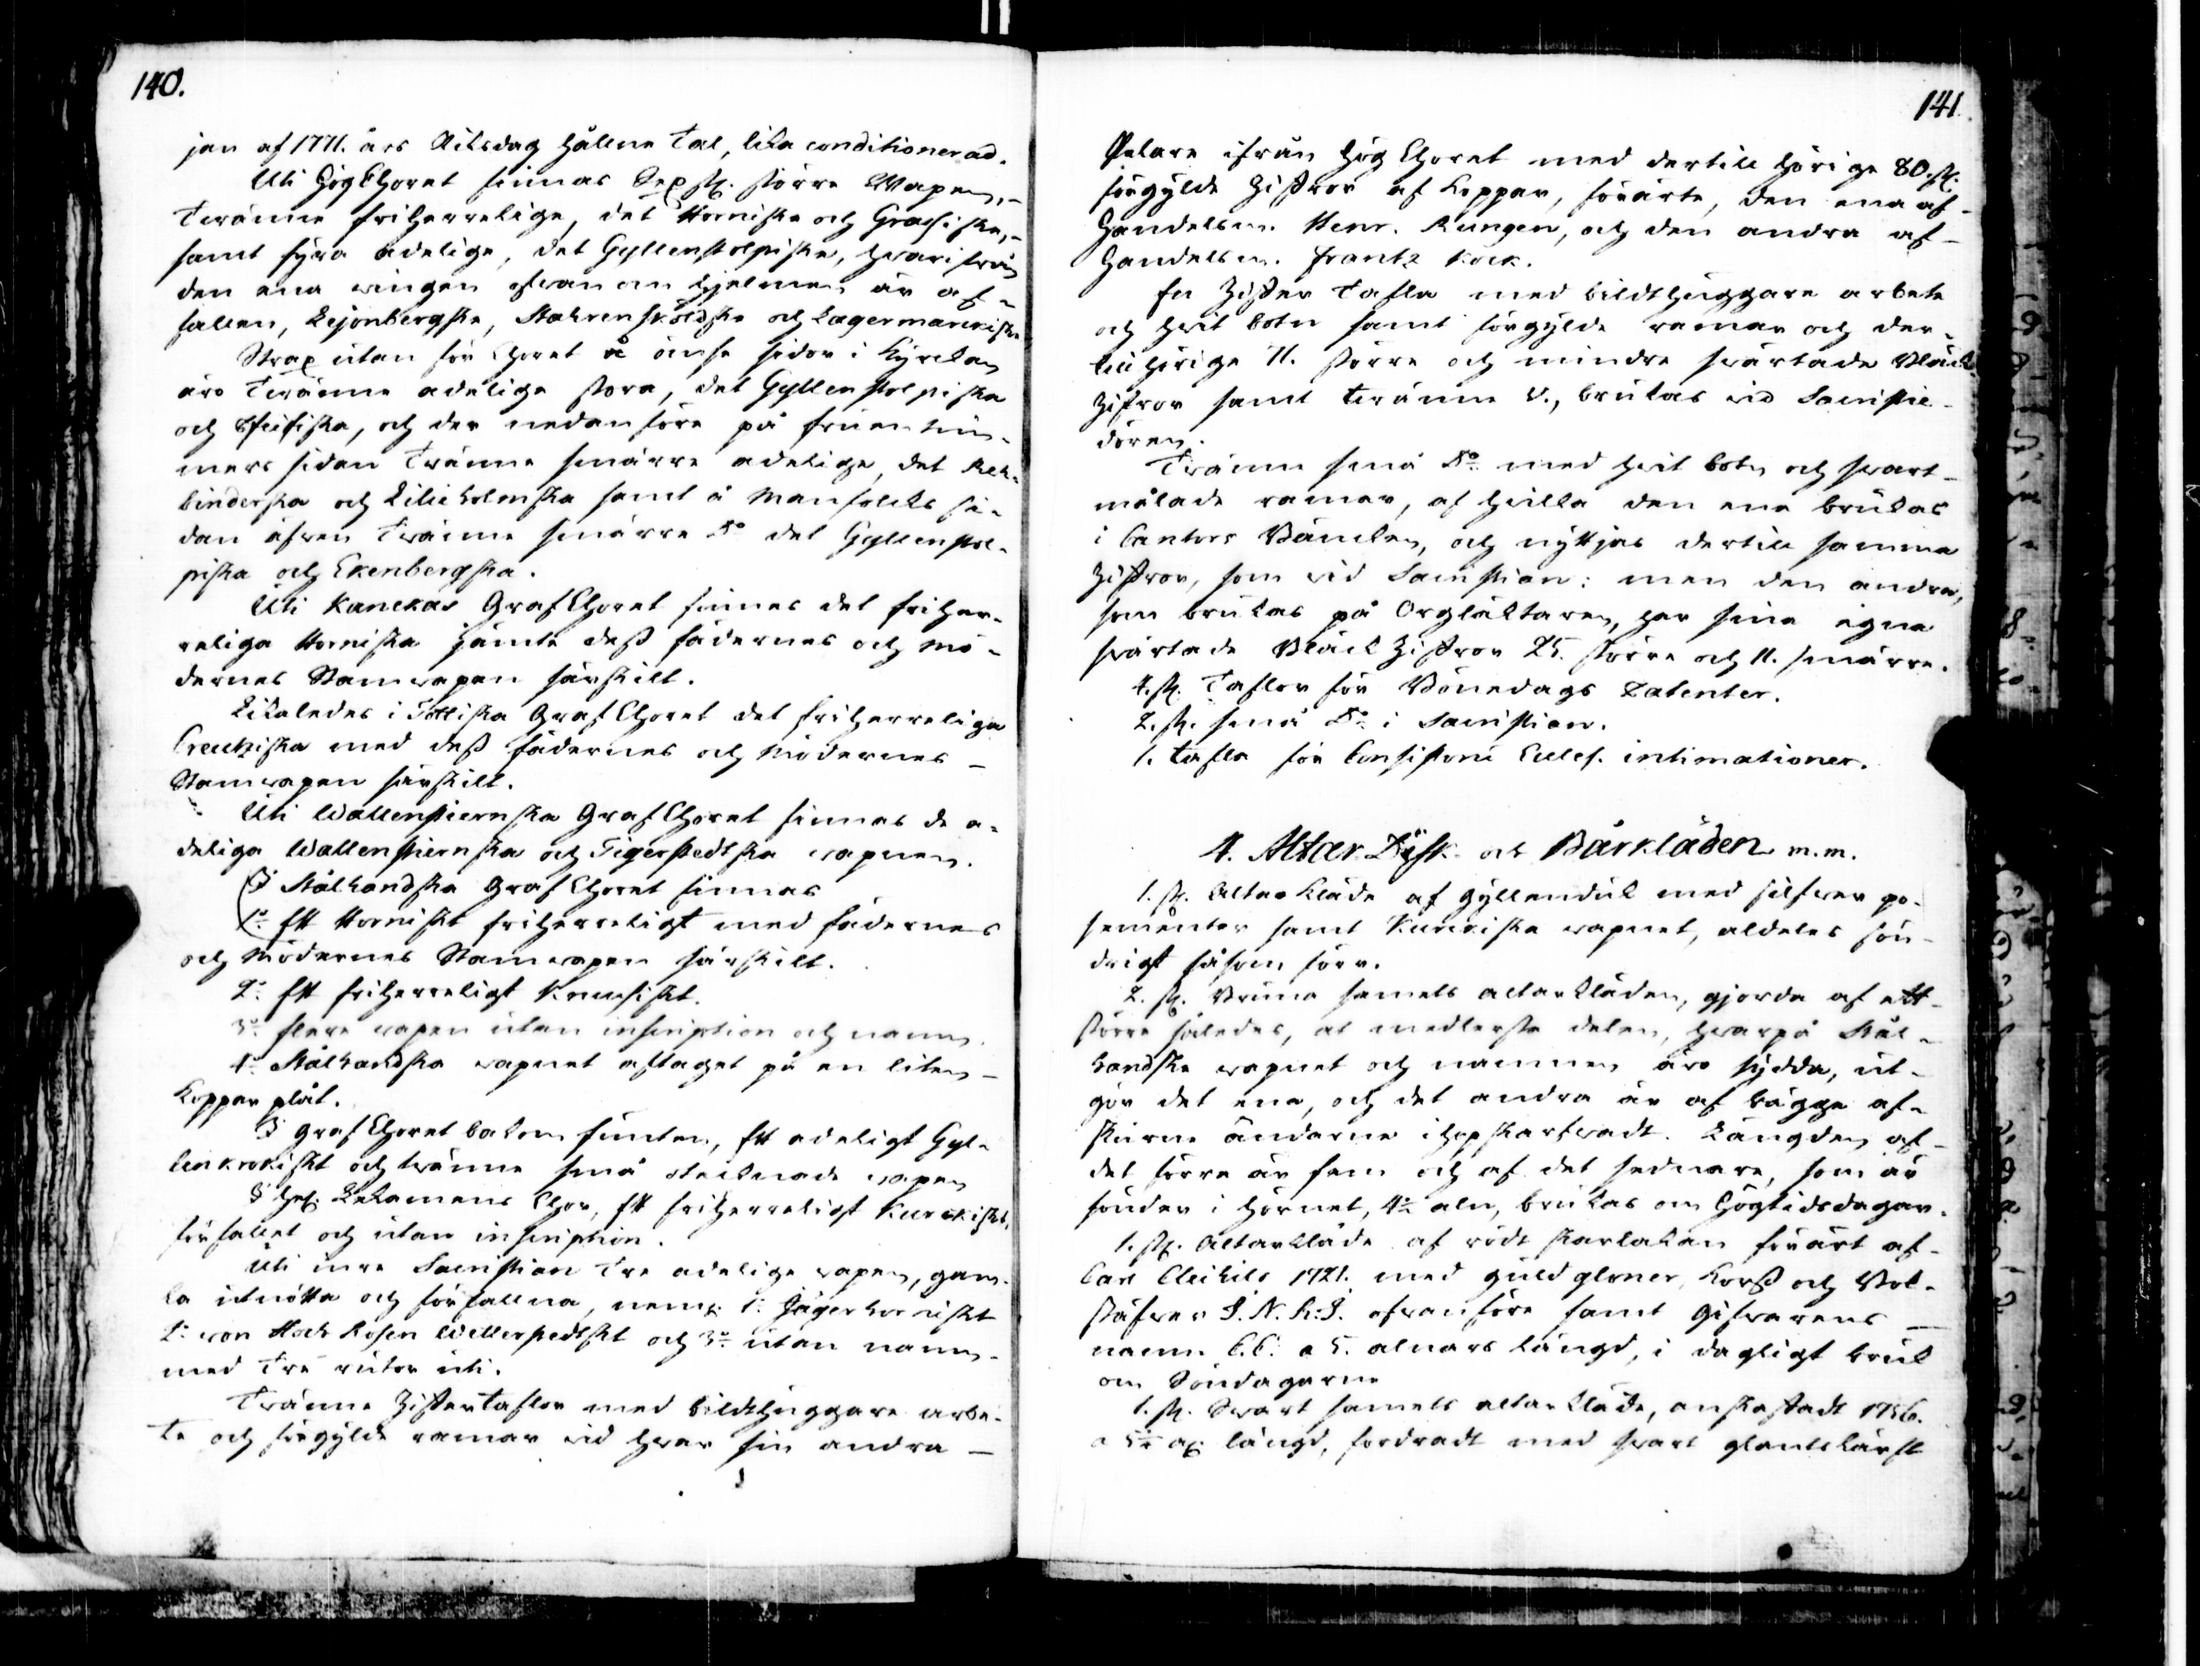 140.
jan af 1771. års Riksdag hållne Tal, lika conditionerad.
Uti HögChoret finnas Sex st. större Wapen,
Twänne friherrelige, det Horniska och Grassiska,
samt fyra adelige, det Gyllenstolpiska, hwarifrån
den ena wingen ofwanom hjelmen är af-
fallen, Lejonbergska, Stahrensköldska och Lagermarckiska
Strax utan för Choret å ömse sidor i Kyrckan
äro Twänne adelige stora, det Gyllenstolpiska
och, och der nedanföre på fruentim-
mers sidan Twänne smärre adelige, det Reh-
binderska och Liljeholmska samt å Manfolcks si-
dan äfwen Twänne smärre do det Gyllenstol-
piska och Ekenbergska.
Uti Kanckas GrafChoret finnes det friher-
religa Horniska jämte dess fädernes och mö-
dernes Stamwapen särskilt.
Likaledes i Tottiska GrafChoret det friherreliga
Creutziska med dess fädernes och Mödernes
Stamwapen särskilt.
Uti Wallenstiernska GrafChoret finnas de a-
deliga Wallenstiernska och Tigerstedtska wapnen.
I Stålhandska GrafChoret finnas
1o Ett Horniskt friherreligt med fädernes
och Mödernes Stamwapen särskilt.
2o Ett friherreligt
3o flere wapen utan inscription och namn.
4o Stålhandska wapnet aftaget på en liten
Kopparplåt.
I GrafChoret bakom funten, Ett adeligt Gyl-
lenkrokiskt och twänne små wapen
I Chor, Ett friherreligt Kurckiskt,
förfallet och utan inscription.
Uti inre Sacristian Tre adelige wapen, gam-
la utnötta och förfallna, neml. 1o Jägerhorniskt
2o von Rosen Wellerstedtskt och 3o utan namn
med Tre rutor uti.
Twänne Ziffertaflor med bildthuggare arbe-
te och förgylde ramar wid hwar sin andra
141.
Pelare ifrån Hög Choret med dertill hörige 80 st.
förgylde Ziffror af Koppar, förärte, den ena af
Handelsm. Henr. Rungen, och den andra af
Handelsm. Frantz Kock.
En Ziffer Tafla med bildthuggare arbete
och hwit botn samt förgylde ramar och der-
till hörige 71. större och mindre swärtade Bläck
Ziffror samt twänne V., brukas wid Sacristie-
dören.
Twänne små do med hwit botn och swart-
målade ramar, af hwilka den ena brukas
i Cantors Bäncken, och nyttjas dertill samma
Ziffror, som wid Sacristian: men den andra,
som brukas på Orgläktaren, har sina egna
swärtade Bläck Ziffror 25. större och 11. smärre.
4. st. Taflor för Bönedags Placater.
2. st. små do i Sacristian.
1. Tafla för Consistorii Eccles. intimationer.
4. Altar Disk och Bårkläden m.m.
1. st. Altar Kläde af Gyllenduk med silfwer po-
sementer samt Kurckiska wapnet, aldeles sön-
drigt såsom förr.
2. st. Bruna samets altarkläden, gjorda af ett
större således, at medlersta delen, hwarpå Stål-
handska wapnet och namnen äro sydda, ut-
gör det ena, och det andra är af bägge af-
skurne ändarne ihopskarfwadt. Längden af
det förra är fem och af det sednare, som är
sönder i hörnet, 4½ aln, brukas om Högtidsdagar.
1. st. Altarkläde af rödt skarlakan förärt af
Carl 1721. med guld gloner, Kors och Bok-
stäfwer I. N. R. I. ofwanföre samt Gifwarens
namn C.C. a 5. alnars längd, i dagligt bruk
om Söndagarne
1. st. Swart samets altar Kläde, anskaffadt 1756.
a längd, fordradt med swart glantslärft